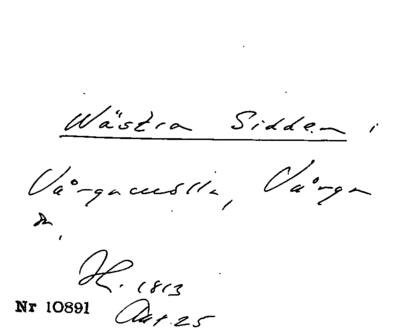 Wästra Sidden i
Vårgamölla, Vårga
H. 1813
Nr 10891 Aut. 25